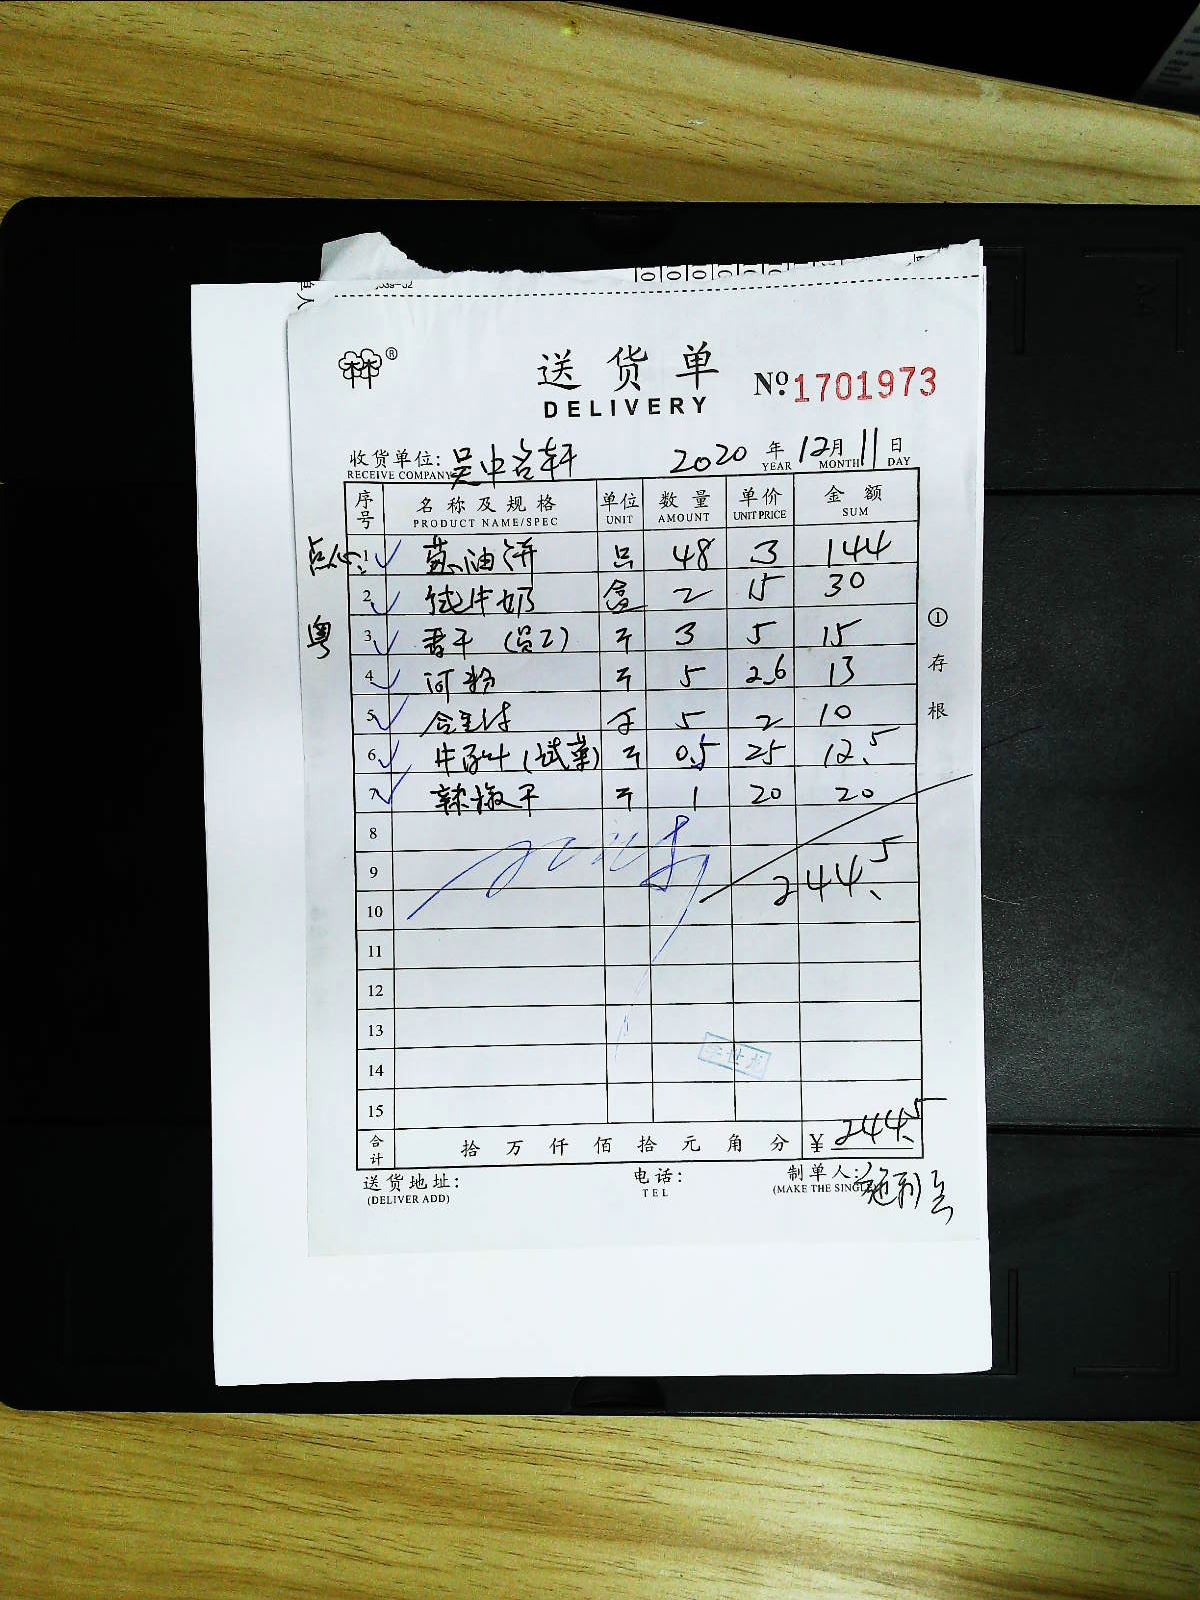 送货单
DELIVERY
No. 1701973
收货单位: 吴中名轩 2020 年 12月 11 日
RECEIVE COMPANY YEAR MONTH DAY
序号 名称及规格 单位 数量 单价 金额
PRODUCT NAME/SPEC UNIT AMOUNT UNIT PRICE SUM
点心: 1 葱油饼 只 48 3 144
2 纯牛奶 盒 2 15 30
粤 3 香干 (员工) 斤 3 5 15
4 河粉 斤 5 2.6 13
5 斤 5 2 10
6 (试菜) 斤 0.5 25 12.5
7 辣椒干 斤 1 20 20
8
9 244.5
10
11
12
13
14
15
合计 拾 万 仟 佰 拾 元 角 分 ¥ 244.5
送货地址: 电话: 制单人:
(DELIVER ADD) TEL (MAKE THE SINGLE)
① 存根